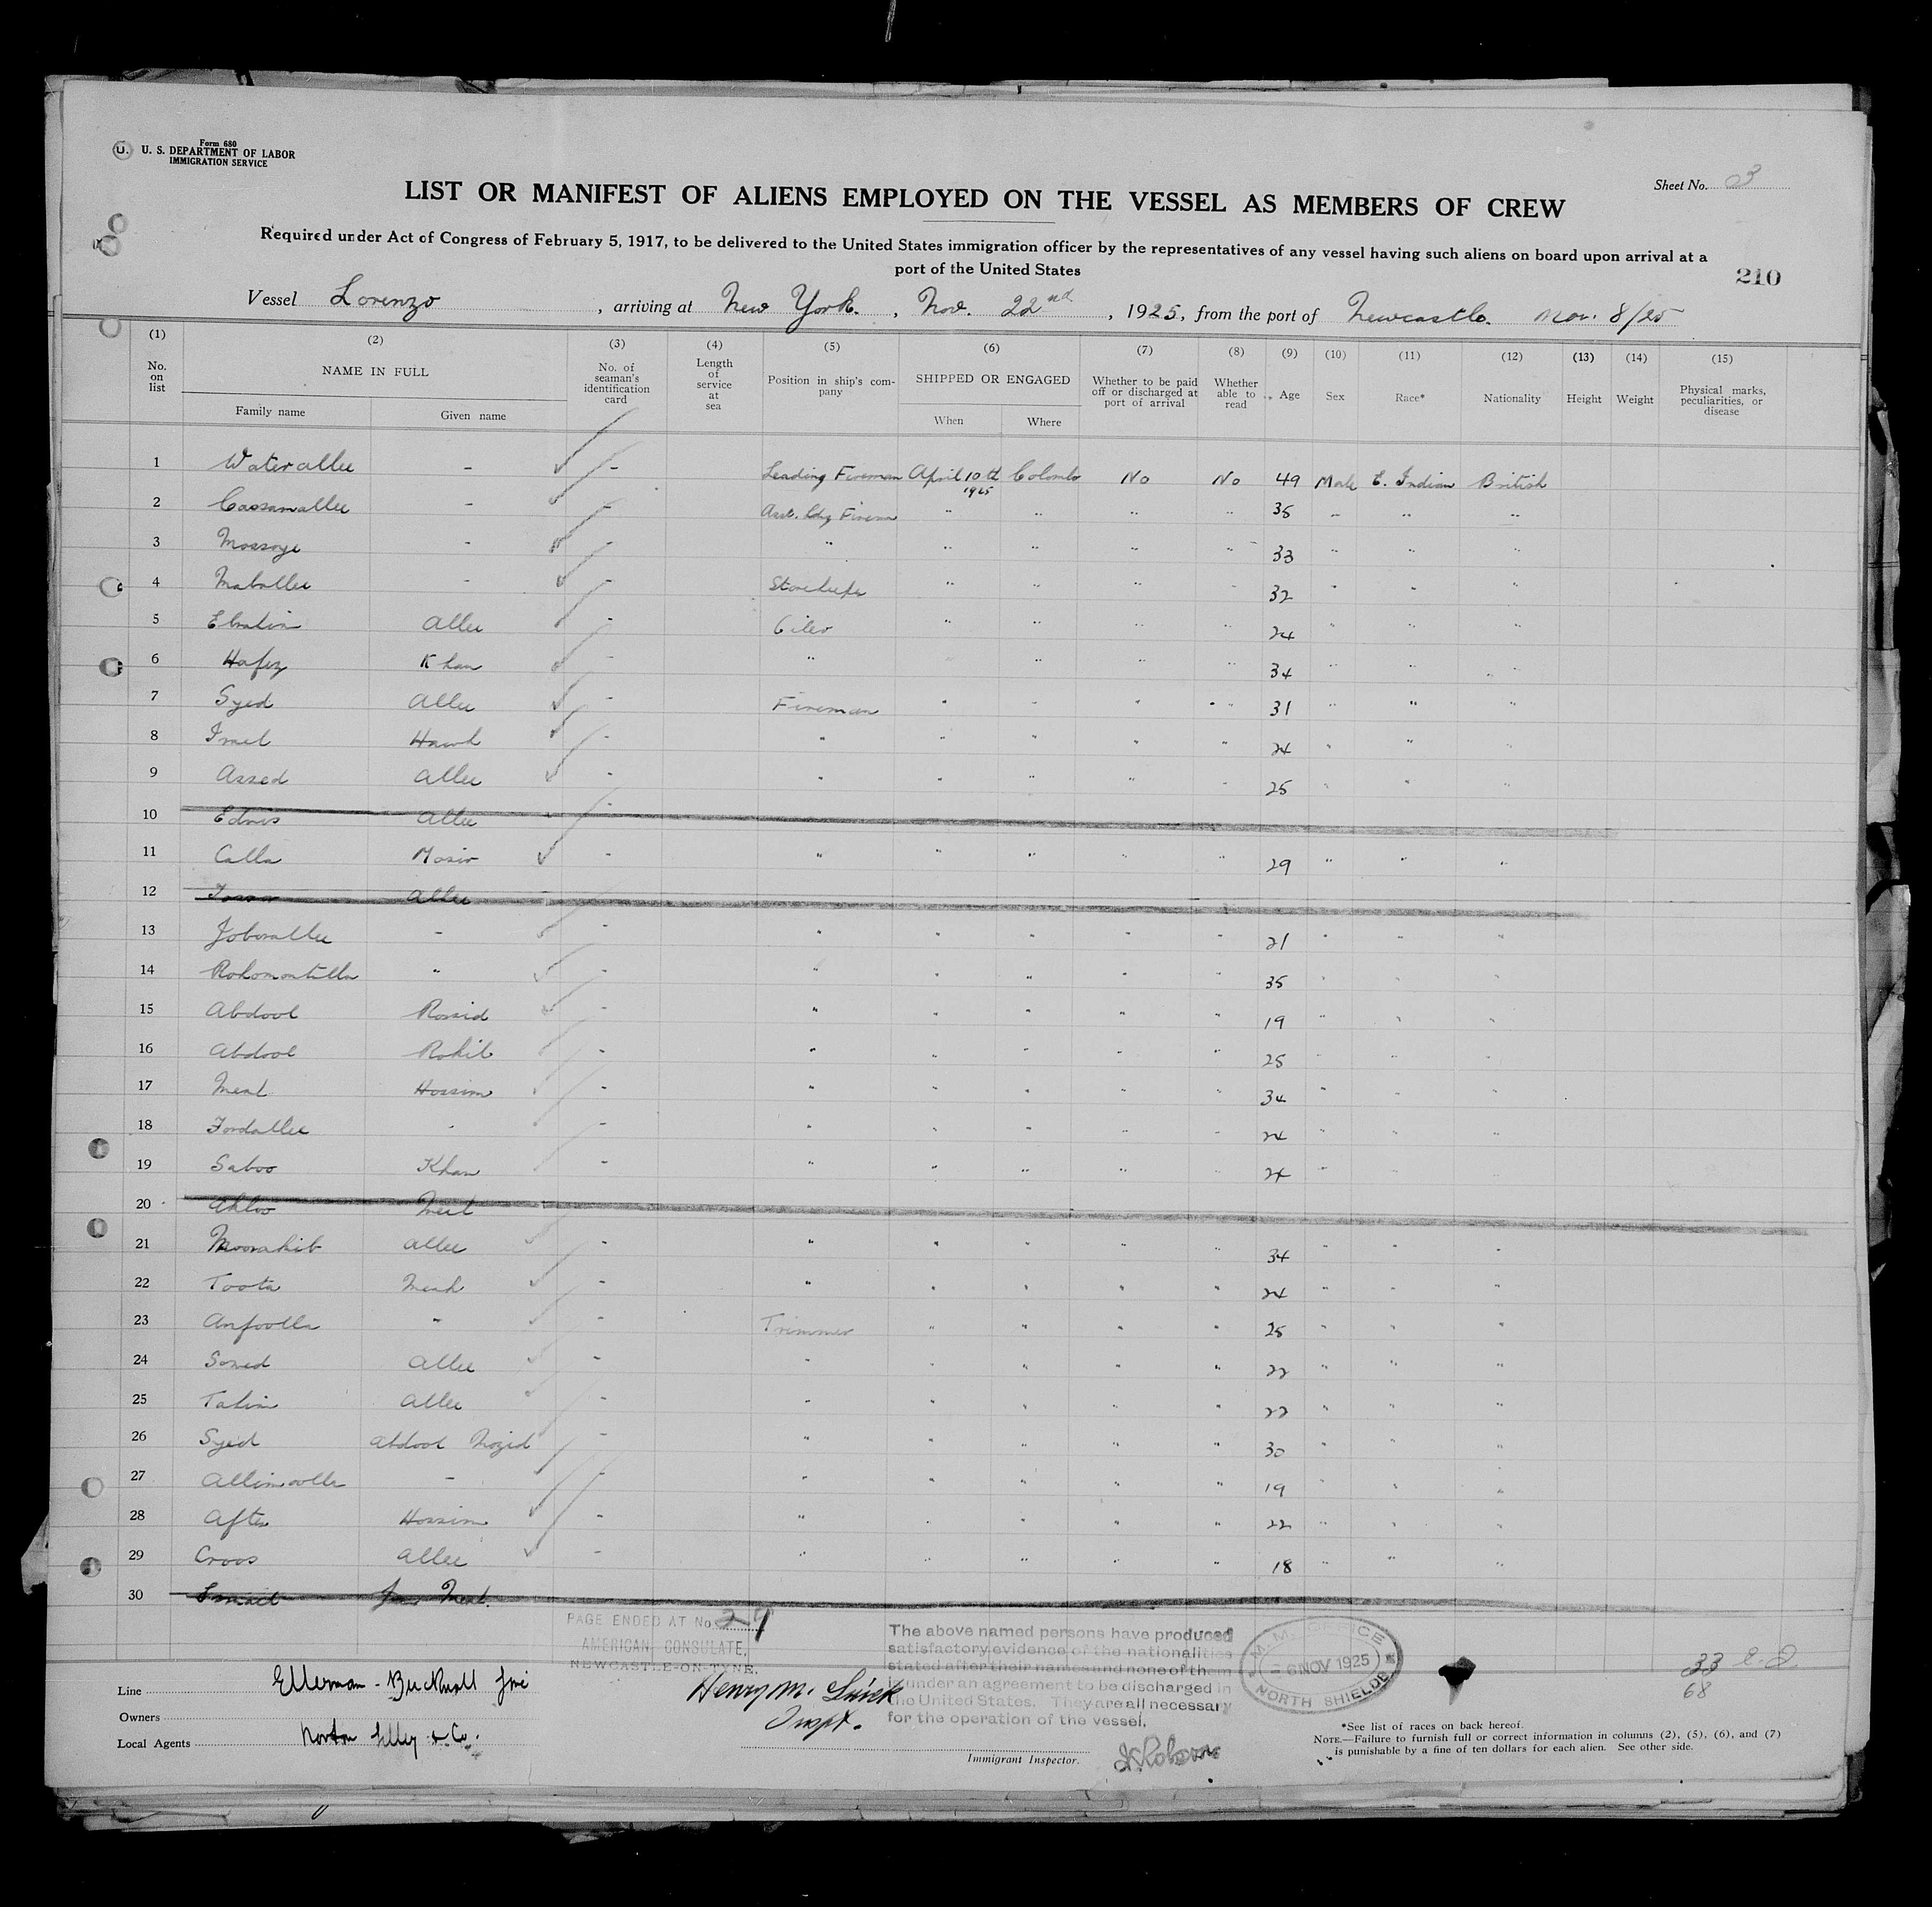 Form 680
U. S. DEPARTMENT OF LABOR
IMMIGRATION SERVICE
Sheet No. 3
LIST OR MANIFEST OF ALIENS EMPLOYED ON THE VESSEL AS MEMBERS OF CREW
Required under Act of Congress of February 5, 1917, to be delivered to the United States immigration officer by the representatives of any vessel having such aliens on board upon arrival at a
port of the United States
210
Vessel Lorenzo, arriving at New York., Nov. 22nd, 1925, from the port of Newcastle. Nov. 8/25
(1) (2) (3) (4) (5) (6) (7) (8) (9) (10) (11) (12) (13) (14) (15)
No. on list NAME IN FULL Family name Given name No. of seaman's identification card Length of service at sea Position in ship's company SHIPPED OR ENGAGED When Where Whether to be paid off or discharged at port of arrival Whether able to read Age Sex Race* Nationality Height Weight Physical marks, peculiarities, or disease
1 Waterallee - - Leading Fireman April 10th 1925 Colombo No No 49 Male E. Indian British
2 Cassamallee - - Asst. Ldg Fireman " " " " 35 " " "
3 - - " " " " " 33 " " "
4 Maballee - - Storekeeper " " " " 32 " " "
5 Allee - Oiler " " " " 24 " " "
6 Hafiz Khan - " " " " " 34 " " "
7 Syed Allee - Fireman " " " " 31 " " "
8 - " " " " " 24 " " "
9 Assed Allee - " " " " " 25 " " "
10 Edris Allee -
11 Calla Mosir - " " " " " 29 " " "
12 Allee
13 Joborallee - - " " " " " 21 " " "
14 Rohomontulla " - " " " " " 35 " " "
15 Abdool Rossid - " " " " " 19 " " "
16 Abdool Rohib - " " " " " 25 " " "
17 Meah Hossim - " " " " " 34 " " "
18 Fordallee - - " " " " " 24 " " "
19 Saboo Khan - " " " " " 24 "
20
21 Moorahib Allee - " " " " " 34 " " "
22 Toota Meah - " " " " " 24 " " "
23 Anfoolla " - Trimmer " " " " 25 " " "
24 Soned Allee - " " " " " 22 " " "
25 Talim Allee - " " " " " 22 " " "
26 Syed Abdool Mozid - " " " " " 30 " " "
27 Allimoolla - - " " " " " 19 " " "
28 After Hossim - " " " " " 22 " " "
29 Croos Allee - " " " " " 18 " " "
30 Ismail Meah.
PAGE ENDED AT No. 29
AMERICAN CONSULATE,
NEWCASTLE-ON-TYNE.
The above named persons have produced
satisfactory evidence of the nationalities
stated after their names and none of them
is under an agreement to be discharged in
the United States. They are all necessary
for the operation of the vessel.
M. M. OFFICE
6 NOV 1925
NORTH SHIELDS
33
68
Line Ellerman - Bucknall
Owners
Local Agents Norton Lilly & Co.
Henry M.
Inspt.
Immigrant Inspector.
*See list of races on back hereof.
NOTE.—Failure to furnish full or correct information in columns (2), (5), (6), and (7)
is punishable by a fine of ten dollars for each alien. See other side.